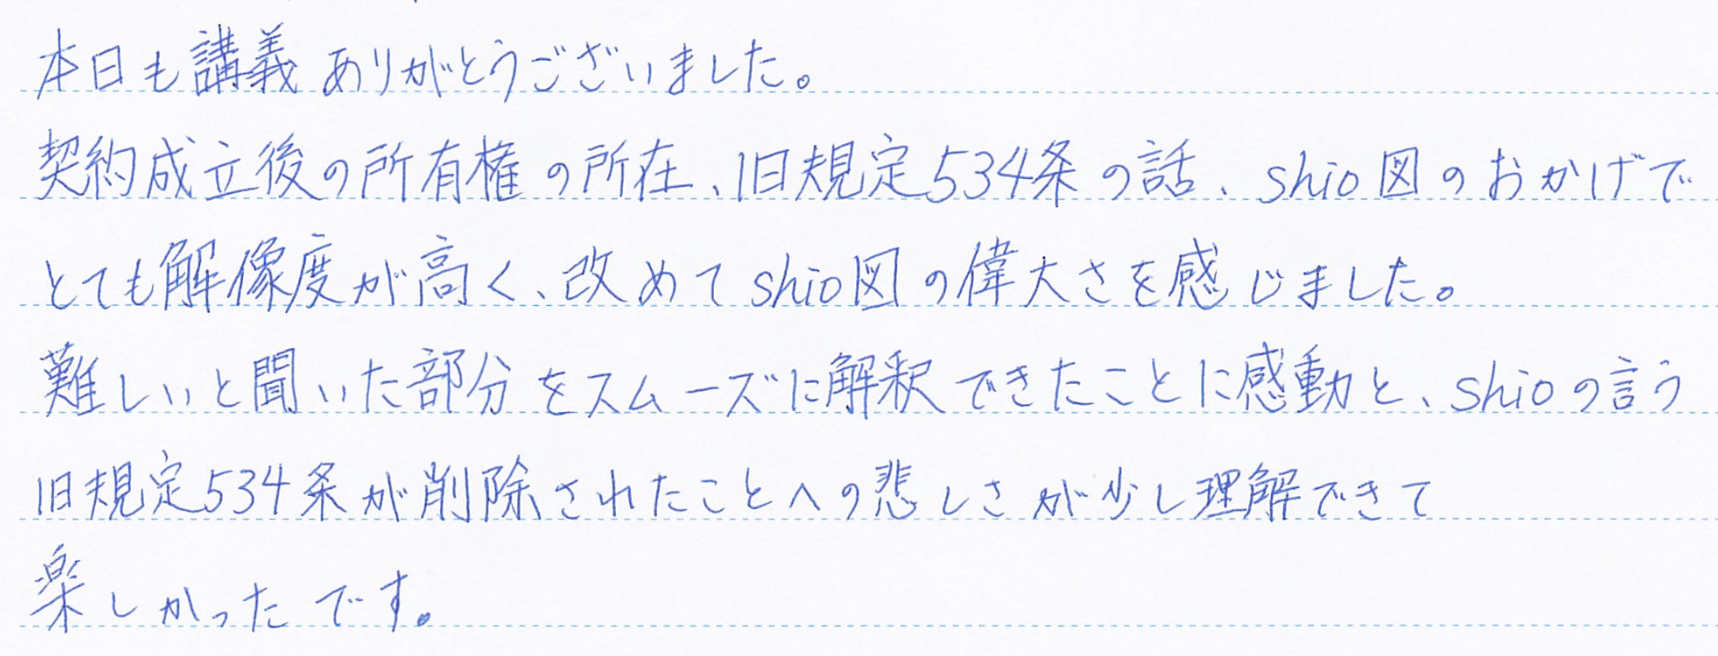 本日も講義ありがとうございました。
契約成立後の所有権の所在、旧規定534条の話、shio図のおかげで
とても解像度が高く、改めてshio図の偉大さを感じました。
難しいと聞いた部分をスムーズに解釈できたことに感動と、shioの言う
旧規定534条が削除されたことへの悲しさが少し理解できて
楽しかったです。